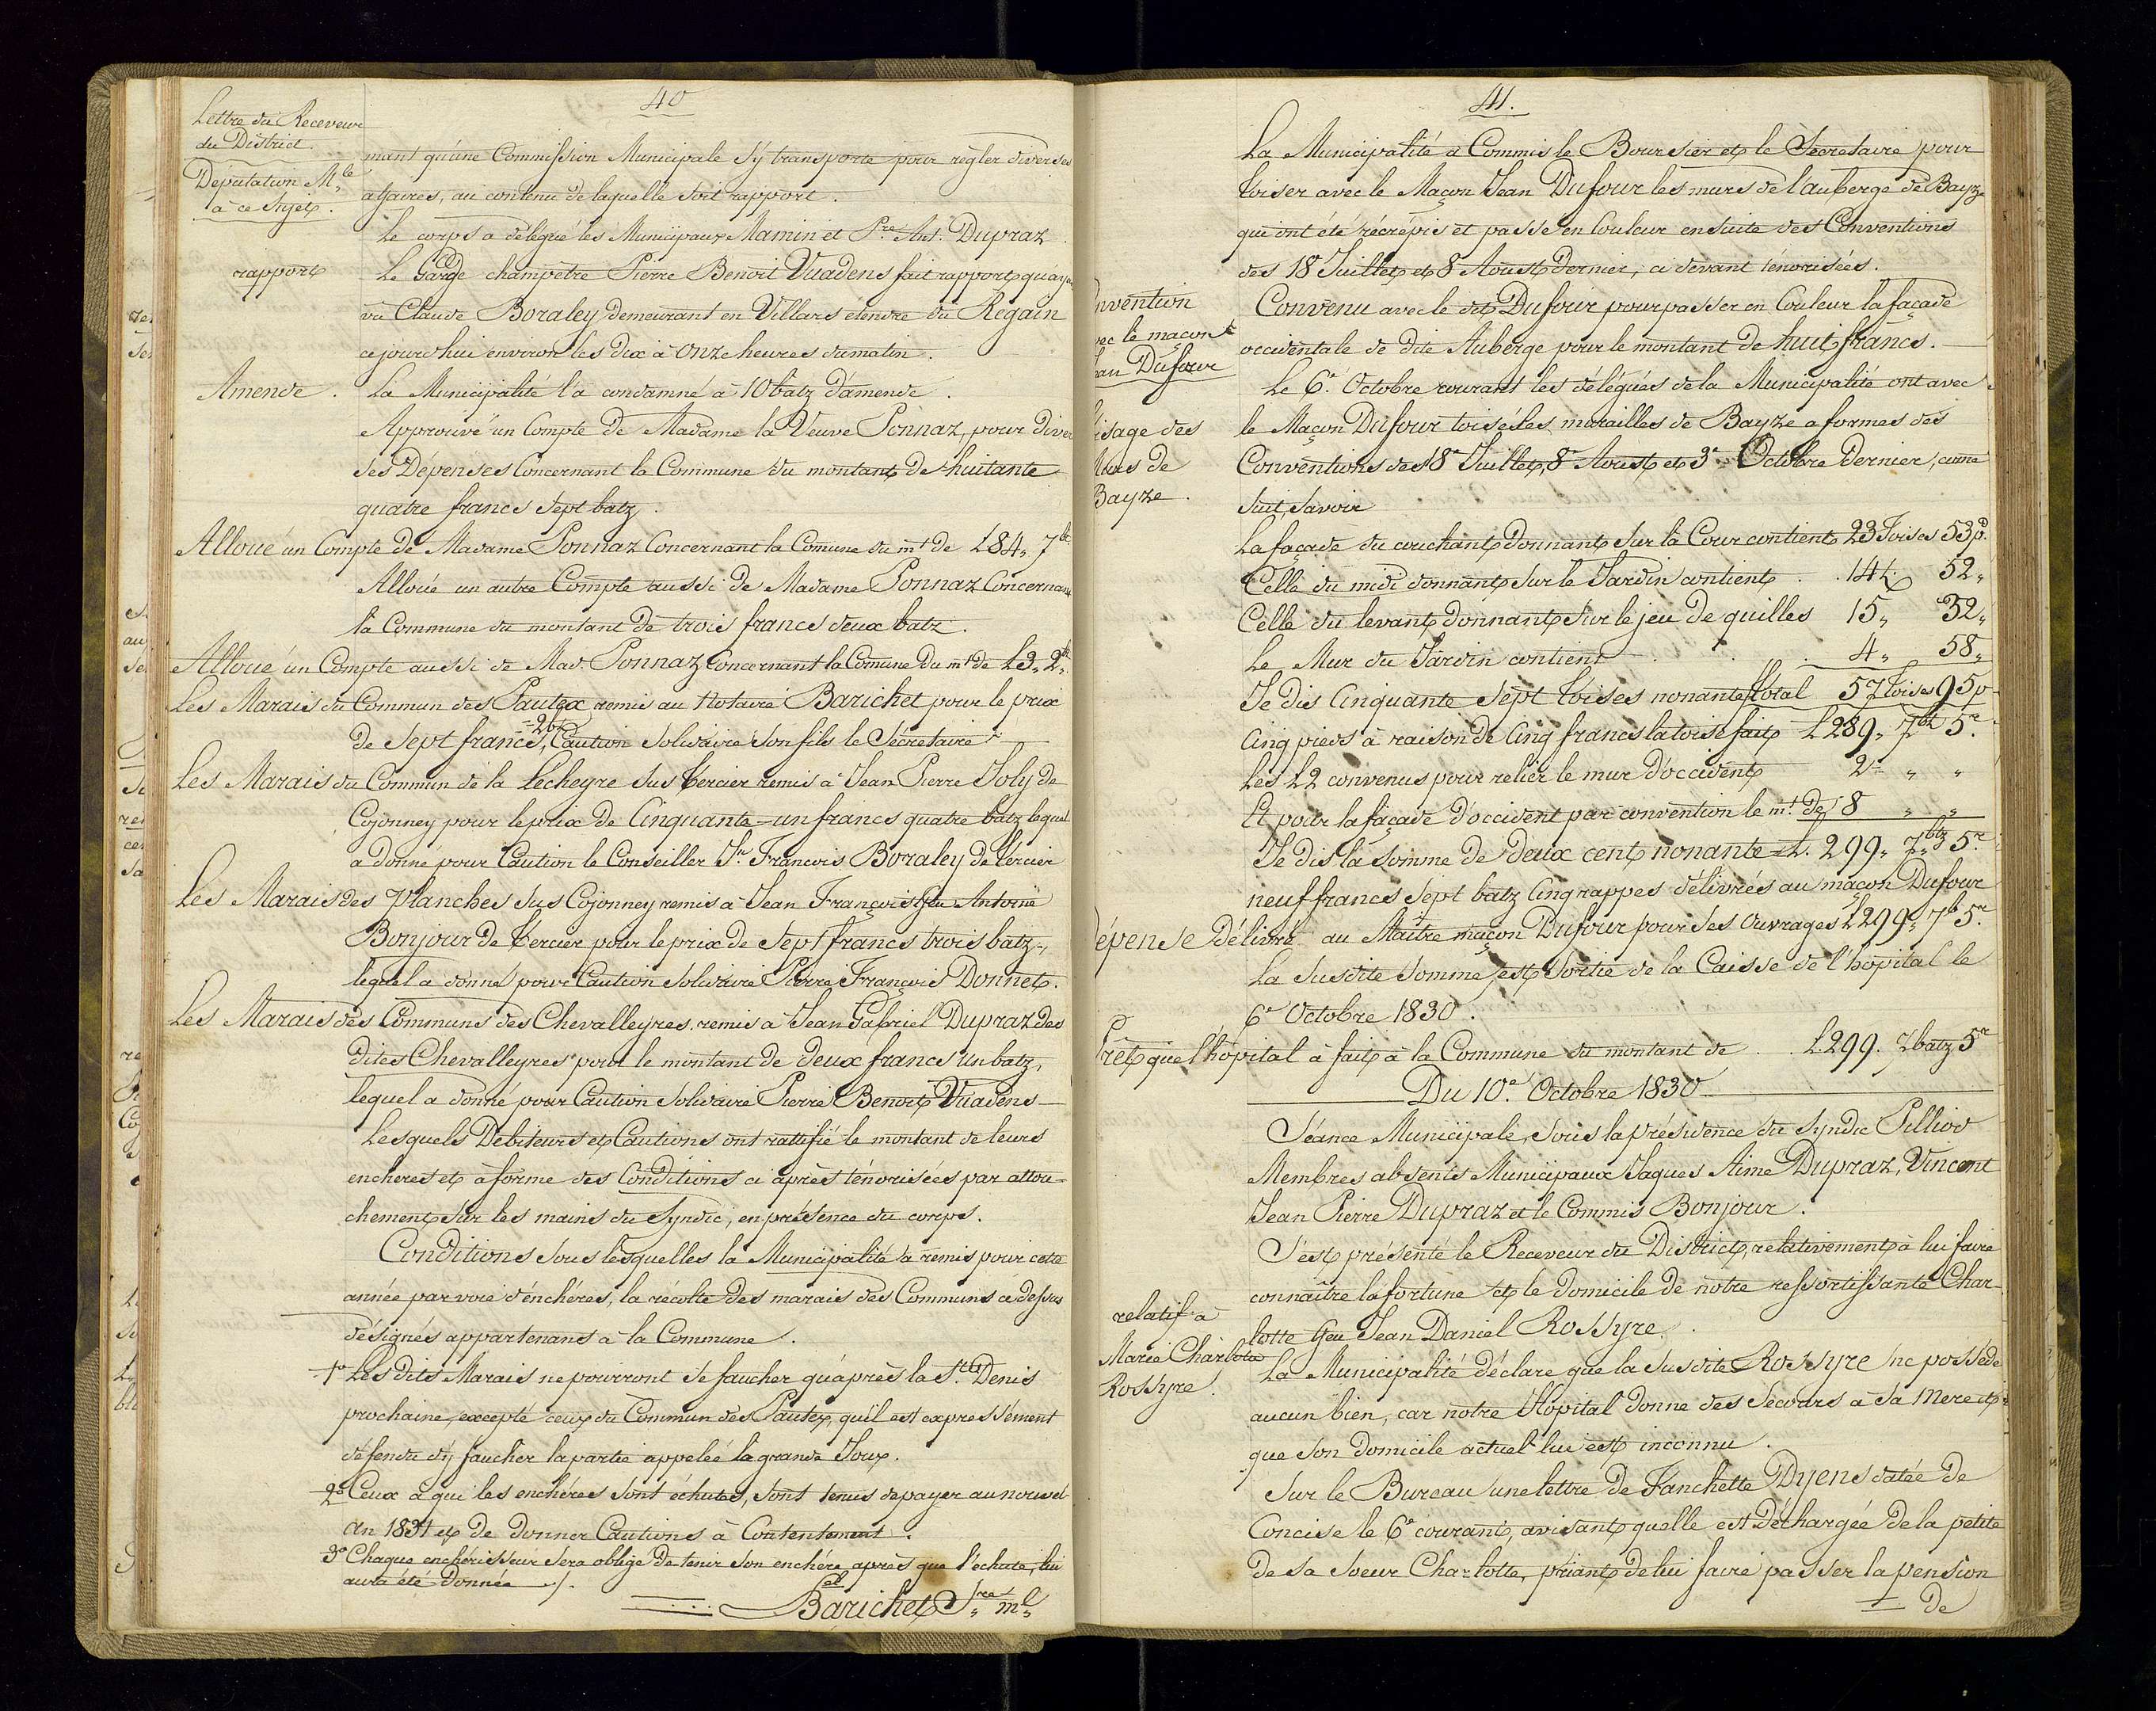 40
Lettre du Receveur
du District
Députation M.le
à ce sujet.
mant qu'une Commission Municipale s'y transporte pour régler diverses
affaires, au contenu de laquelle soit rapport.
Le corps a délégué les Municipaux Mamin et P.re Ant. Dupraz
rapport
Le Garde champêtre Pierre Benoit Vuadens fait rapport qu'ayant
vu Claude Boraley demeurant en Villars étendre du Regain
cejourd'hui environ les dix à onze heures du matin.
Amende.
La Municipalité l'a condamné à 10 batz d'amende.
Approuvé un Compte de Madame la Veuve Ponnaz, pour diver
ses Dépenses Concernant la Commune du montant de huitante
quatre francs sept batz.
Alloué un Compte de Madame Ponnaz Concernant la Comune du m.t de L84„ 7 bt
Alloué un autre Compte aussi de Madame Ponnaz Concernant
la Commune du montant de trois francs deux batz.
Alloué un Compte aussi de Mad. Ponnaz concernant la Comune du m.t de L3„ 2„
Les Marais du Commun des Pautex remis au Notaire Barichet pour le prix
= 2 bz
de Sept francs, Caution solidaire son fils le Sécretaire
Les Marais du Commun de la Lecheyre sus Vercier remis à Jean Pierre Joly de
Cojonney pour le prix de Cinquante=un francs quatre batz lequel
a donné pour Caution le Conseiller J.n François Boraley de Vercier
Les Marais des Planches sus Cojonney remis à Jean François feu Antoine
Bonjour de Vercier pour le prix de Sept francs trois batz,
lequel a donné pour Caution solidaire Pierre François Donnet.
Les Marais des Communs des Chevalleyres remis à Jean Gabriel Dupraz des
dites Chevalleyres pour le montant de deux francs un batz,
lequel a donné pour Caution solidaire Pierre Benoit Vuadens
Lesquels Débiteurs et Cautions ont rattifié le montant de leurs
encheres et à forme des Conditions ci après ténorisées par attou=
chement sur les mains du Syndic, en présence du corps.
Conditions sous lesquelles la Municipalité a remis pour cette
année par voie d'enchéres, la récolte des marais des Communs ci dessus
désignés appartenans à la Commune.
1.o Les dits Marais ne pourront se faucher qu'après la S.t Denis
prochaine, excepté ceux du Commun des Pautex, qu'il est expressément
défendu d'y faucher la partie appelée la grande Joux.
2.o Ceux à qui les enchéres sont échutes, sont tenus de payer au nouvel
an 1831 et de donner Cautions à Contentement.
3.o Chaque enchérisseur sera obligé de tenir son enchére après que l'échute lui
aura été donnée ./.
Barichet S.re m.l
41.
La Municipalité a Commis le Boursier et le Sécretaire pour
toiser avec le Maçon Jean Dufour les murs de l'auberge de Bayze
qui ont été récrépis et passé en Couleur ensuite des Conventions
des 18e Juillet et 8 Aoust dernier, ci devant ténorisées.
nvention
vec le maçon
ean Dufour
Convenu avec le dit Dufour pour passer en Couleur la façade
occidentale de dite Auberge pour le montant de huit francs.
Le 6e Octobre courant les délégués de la Municipalité ont avec
isage des
Murs de
Bayze.
le Maçon Dufour toisé les murailles de Bayze a formes des
Conventions des 18e Juillet, 8e Aoust et 3e Octobre Dernier, come
suit, Savoir
La façade du couchant donnant sur la Cour contient 23 Toises 53 p.
Celle du midi donnant sur le Jardin contient . . 14 t. 52„
Celle du levant donnant sur le jeu de quilles 15„ 32„
Le Mur du Jardin contient . . . . 4„ 58„
Je dis Cinquante sept toises nonante Total 57 toises 95 p
Cinq pieds à raison de Cinq francs la toise fait L289„ 7 bt 5 r.
Les L2 convenus pour relier le mur d'occident 2= „ „
Et pour la façade d'occident par convention le m.t de 8 „ „
Je dis la Somme de deux cent nonante= L. 299„ 7 btz 5 r
neuf francs sept batz Cinq rappes délivrés au maçon Dufour
épense Délivré au Maître maçon Dufour pour ses Ouvrages L299„ 7 b 5 r.
La susdite somme, est sortie de la Caisse de l'hopital le
6e Octobre 1830.
Prêt que l'hôpital à fait à la Commune du montant de . . L299. 7 batz 5 r
Du 10e Octobre 1830
Séance Municipale, sous la présidence du Syndic Pilliod
Membres absents Municipaux Jaques Aimé Dupraz, Vincent
Jean Pierre Dupraz et le Commis Bonjour.
S'est présenté le Receveur du District, relativement à lui faire
connaître la fortune et le domicile de notre ressortissante Char-
relatif à
Marie Charlotte
Rossyre.
lotte feu Jean Daniel Rossyre.
La Municipalité déclare que la susdite Rossyre ne posséde
aucun bien, car notre Hôpital donne des Secours à sa mere et
que son domicile actuel lui est inconnu.
Sur le Bureau une lettre de Fanchette Dyens datée de
Concise le 6e courant, avisant quelle est Déchargée de la petite
de sa soeur Charlotte, priant de lui faire passer la pension
de